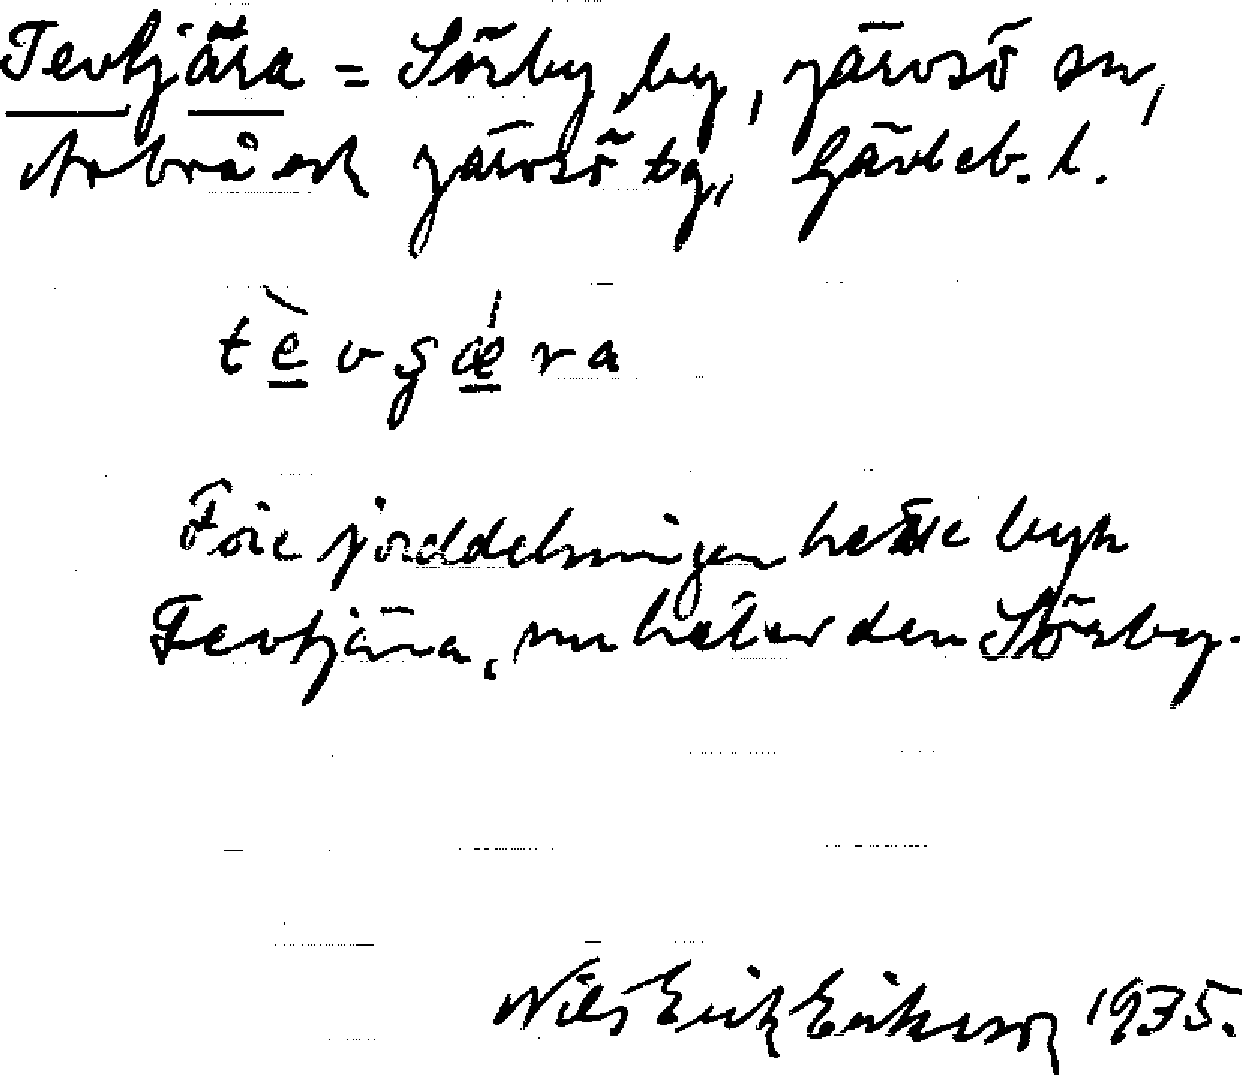 Tevtjära = Sörby, by, Järvsö sn,
Arbrå och Järvsö tg, Gävleb. l.
tè̱vgǽ̱ra
Före jorddelningen hette byn
Tevtjära, nu heter den Sörby.
Nils Erik Eriksson 1935.